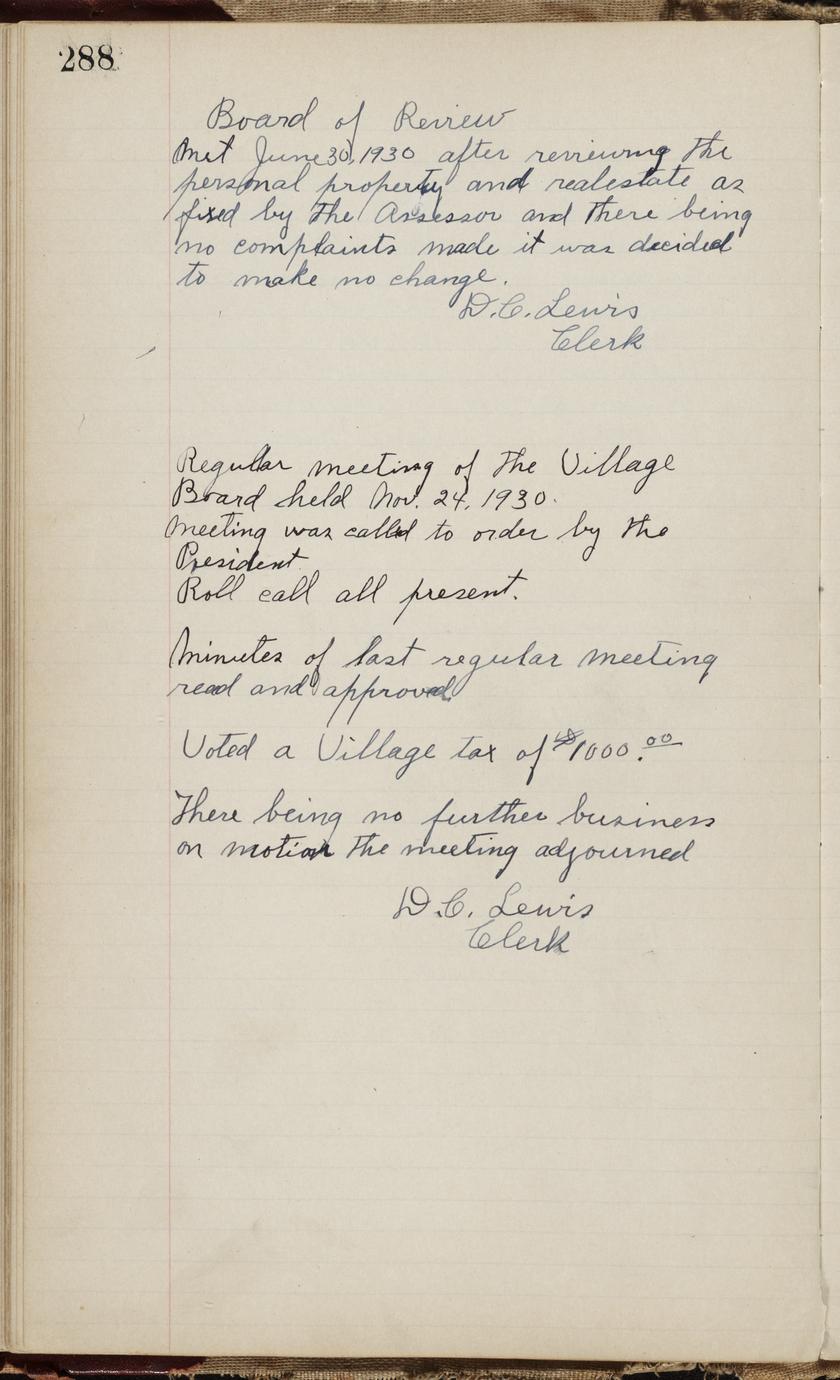 288
Board of Review
Met June 30, 1930 after reviewing the
personal property and realestate as
fixed by the Assessor and there being
no complaints made it was decided
to make no change.
D.C. Lewis
Clerk
Regular meeting of the Village
Board held Nov. 24, 1930.
Meeting was called to order by the
President.
Roll call all present.
Minutes of last regular meeting
read and approved
Voted a Village tax of $1000.00
There being no further business
on motion the meeting adjourned
D.C. Lewis
Clerk